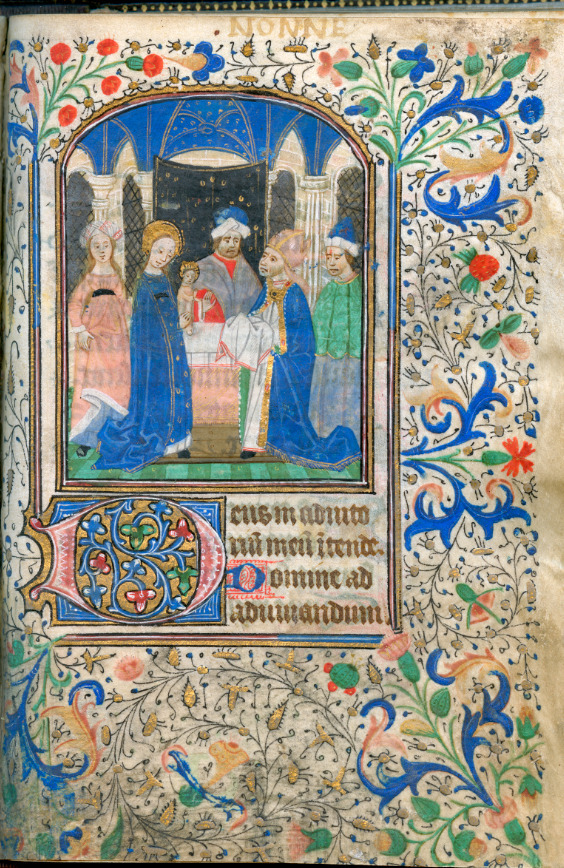 NONNE
Deus in adiuto
riū meū ītende.
Domine ad
adiuuandum